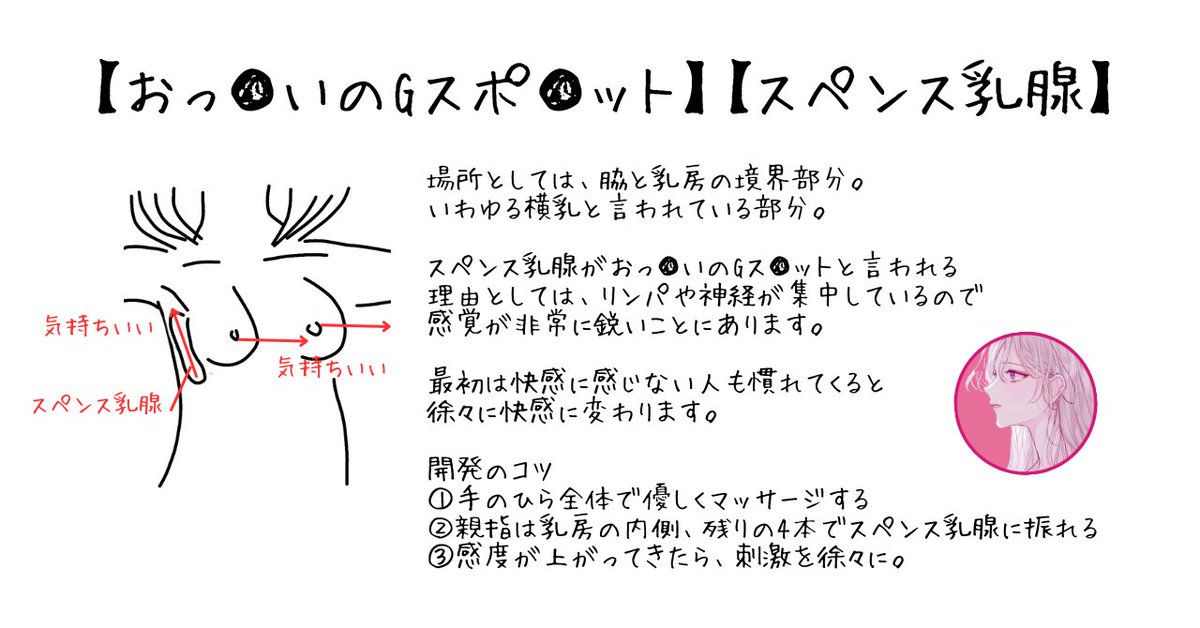 【おっ●いのGスポ●ット】【スペンス乳腺】
場所としては、脇と乳房の境界部分。
いわゆる横乳と言われている部分。
スペンス乳腺がおっ●いのGス●ットと言われる
理由としては、リンパや神経が集中しているので
感覚が非常に鋭いことにあります。
最初は快感に感じない人も慣れてくると
徐々に快感に変わります。
開発のコツ
①手のひら全体で優しくマッサージする
②親指は乳房の内側、残りの4本でスペンス乳腺に振れる
③感度が上がってきたら、刺激を徐々に。
気持ちいい
気持ちいい
スペンス乳腺